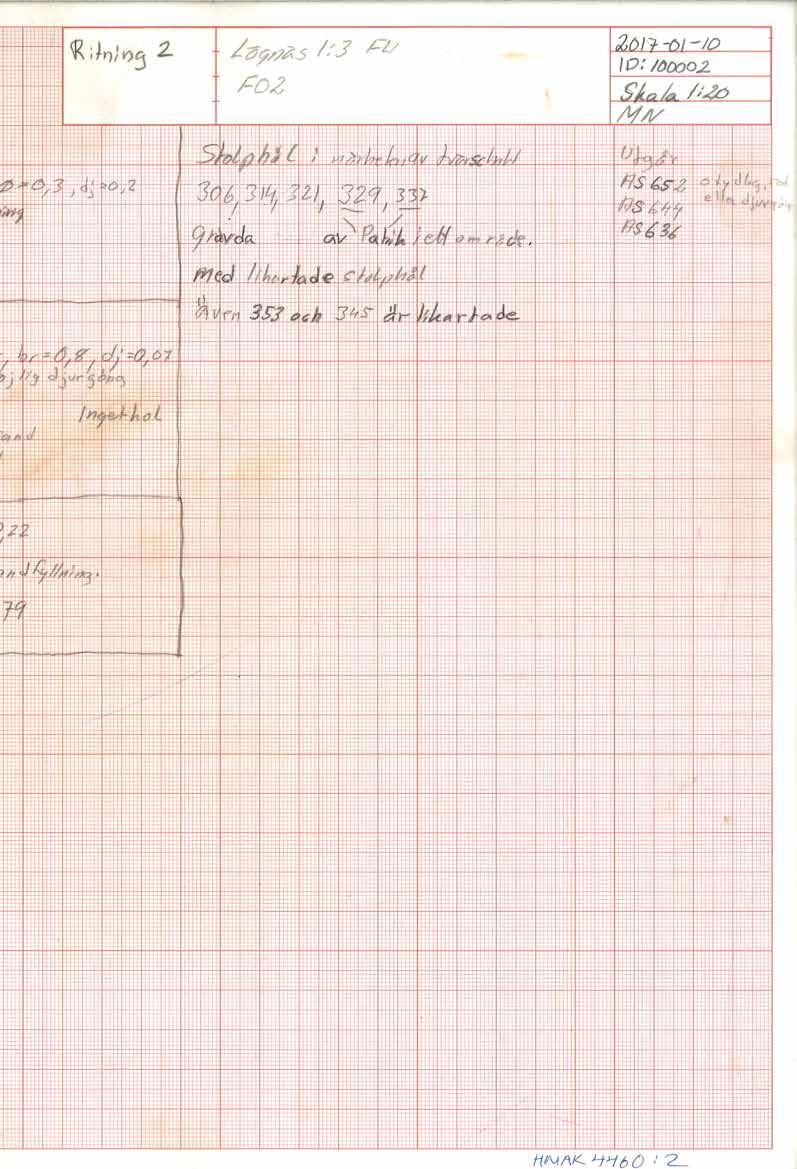 Ritning 2
Lögnäs 1:3 FU
FO2
2017-01-10
ID: 100002
Skala 1:20
MN
Stolphål i närheten av tvärsnitt
306, 314, 321, 329, 337
Grävda av Patrik i ett område.
med likartade stolphål
även 353 och 345 är likartade
Utgår
AS 652 otydlig, rot
AS 644 eller djurgång
AS 636
Ø=0,3, dj=0,2
ing
, br=0,8, dj=0,07
öjlig djurgång
Inget kol
sand
0,22
andfyllning.
79
HMAK 4460:2